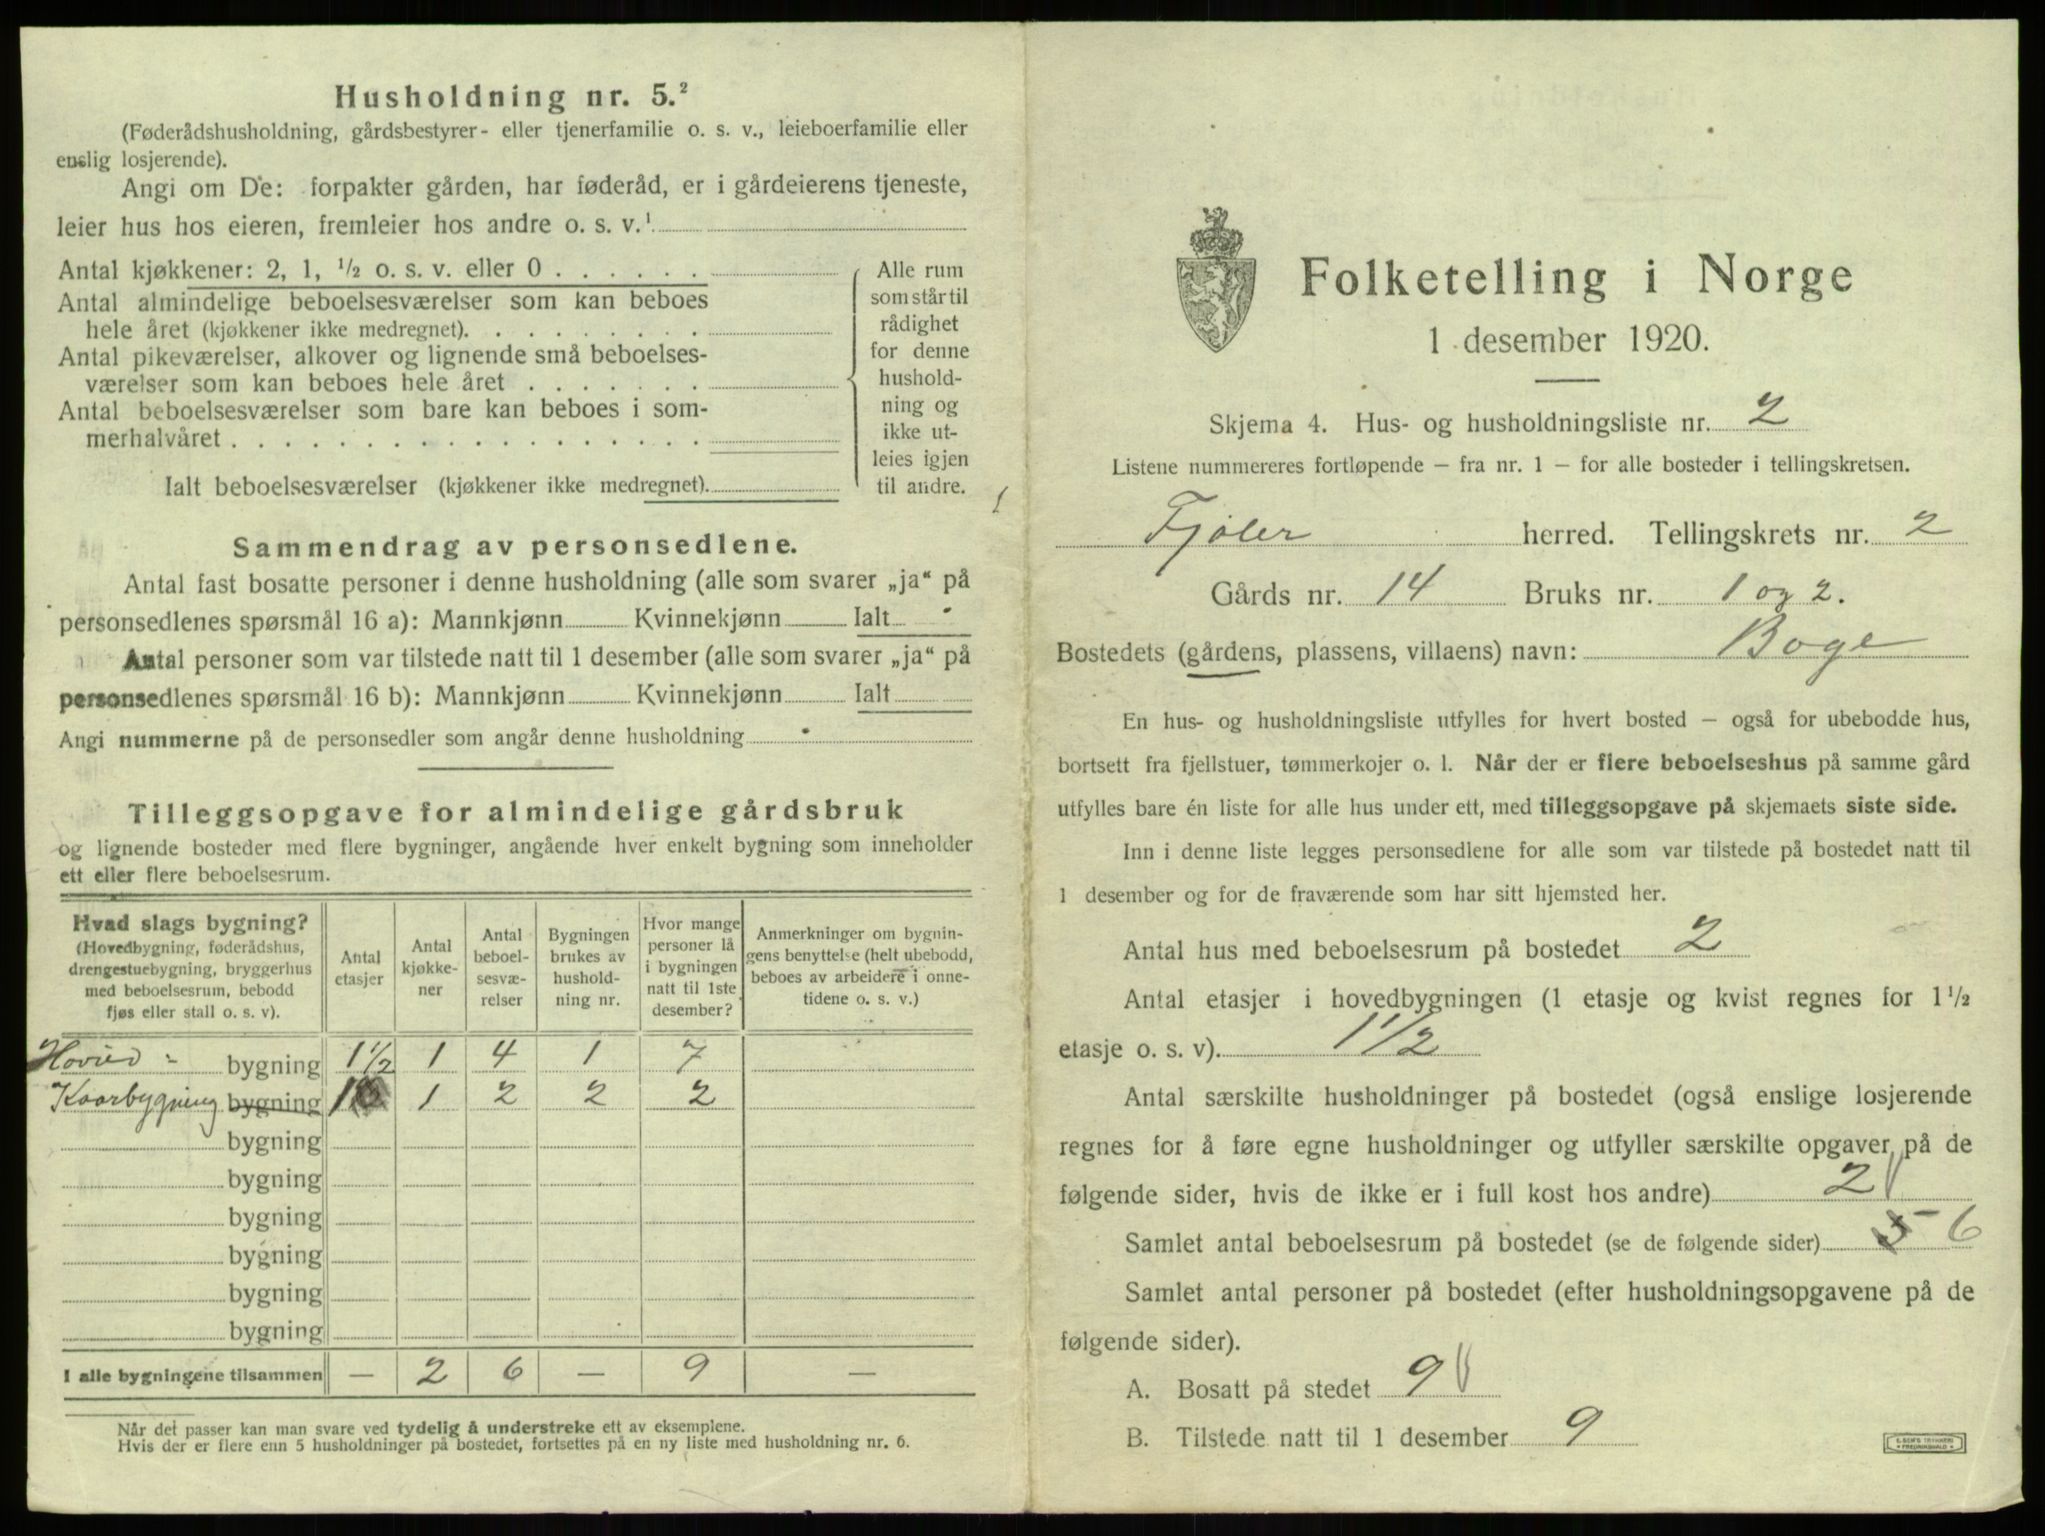 Husholdning nr. 5.²
(Føderådshusholdning, gårdsbestyrer- eller tjenerfamilie o. s. v., leieboerfamilie eller
enslig losjerende).
Angi om De: forpakter gården, har føderåd, er i gårdeierens tjeneste,
leier hus hos eieren, fremleier hos andre o. s. v.¹
Antal kjøkkener: 2, 1, ½ o. s. v. eller 0 . . . . . .
Antal almindelige beboelsesværelser som kan beboes
hele året (kjøkkener ikke medregnet). . . . . . . . .
Antal pikeværelser, alkover og lignende små beboelses-
værelser som kan beboes hele året . . . . . . .
Antal beboelsesværelser som bare kan beboes i som-
merhalvåret . . . . . . . . . . . . . . . . . .
Ialt beboelsesværelser (kjøkkener ikke medregnet).
Alle rum
som står til
rådighet
for denne
hushold-
ning og
ikke ut-
leies igjen
til andre.
Sammendrag av personsedlene.
Antal fast bosatte personer i denne husholdning (alle som svarer „ja“ på
personsedlenes spørsmål 16 a): Mannkjønn Kvinnekjønn Ialt
Antal personer som var tilstede natt til 1 desember (alle som svarer „ja“ på
personsedlenes spørsmål 16 b): Mannkjønn Kvinnekjønn Ialt
Angi nummerne på de personsedler som angår denne husholdning
Tilleggsopgave for almindelige gårdsbruk
og lignende bosteder med flere bygninger, angående hver enkelt bygning som inneholder
ett eller flere beboelsesrum.
Hvad slags bygning?
(Hovedbygning, føderådshus,
drengestuebygning, bryggerhus
med beboelsesrum, bebodd
fjøs eller stall o. s. v).
Antal
etasjer
Antal
kjøkke-
ner
Antal
beboel-
sesvæ-
relser
Bygningen
brukes av
hushold-
ning nr.
Hvor mange
personer lå
i bygningen
natt til 1ste
desember?
Anmerkninger om bygnin-
gens benyttelse (helt ubebodd,
beboes av arbeidere i onne-
tidene o. s. v.)
bygning 1½ 1 4 1 7
Kaarbygning bygning 1 1 2 2 2
bygning
bygning
bygning
bygning
bygning
bygning
I alle bygningene tilsammen — 2 6 — 9 —
Når det passer kan man svare ved tydelig å understreke ett av eksemplene.
Hvis der er flere enn 5 husholdninger på bostedet, fortsettes på en ny liste med husholdning nr. 6.
Folketelling i Norge
1 desember 1920.
Skjema 4. Hus- og husholdningsliste nr. 2
Listene nummereres fortløpende – fra nr. 1 – for alle bosteder i tellingskretsen.
Fjaler herred. Tellingskrets nr. 2
Gårds nr. 14 Bruks nr. 1 og 2.
Bostedets (gårdens, plassens, villaens) navn: Boge
En hus- og husholdningsliste utfylles for hvert bosted – også for ubebodde hus,
bortsett fra fjellstuer, tømmerkojer o. l. Når der er flere beboelseshus på samme gård
utfylles bare én liste for alle hus under ett, med tilleggsopgave på skjemaets siste side.
Inn i denne liste legges personsedlene for alle som var tilstede på bostedet natt til
1 desember og for de fraværende som har sitt hjemsted her.
Antal hus med beboelsesrum på bostedet 2
Antal etasjer i hovedbygningen (1 etasje og kvist regnes for 1½
etasje o. s. v). 1½
Antal særskilte husholdninger på bostedet (også enslige losjerende
regnes for å føre egne husholdninger og utfyller særskilte opgaver på de
følgende sider, hvis de ikke er i full kost hos andre) 2
Samlet antal beboelsesrum på bostedet (se de følgende sider) 5 6
Samlet antal personer på bostedet (efter husholdningsopgavene på de
følgende sider).
A. Bosatt på stedet 9
B. Tilstede natt til 1 desember 9